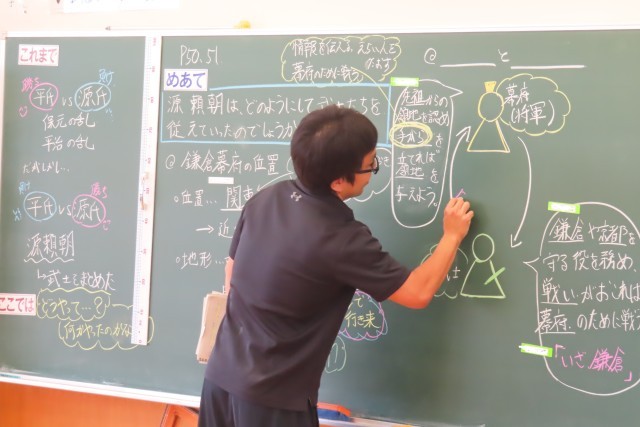 これまで
勝ち
負け
平氏 vs 源氏
保元の乱
平治の乱
だがしかし…
負け
勝ち
平氏 vs 源氏
源頼朝
武士をまとめた
ここでは
どうやって…?
何がやったのかな
P50.51
めあて
源頼朝は、どのようにして武士たちを
従えていたのでしょうか
@ 鎌倉幕府の位置
・位置… 関
→ 近
・地形…
行き来
幕府のために戦う
@ と
先祖からの
領地を認め
手がらを
立てれば
領地を
与えよう。
幕府
(将軍)
鎌倉や京都を
守る役を務め、
戦いがおこれば
幕府のために戦
「いざ鎌倉」